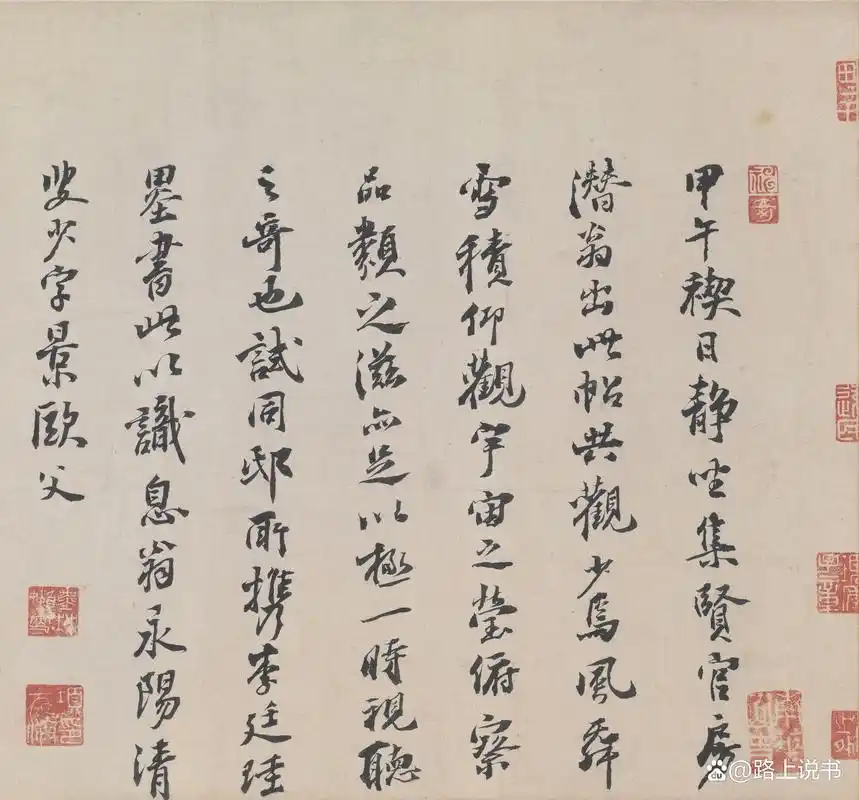 甲午禊日静坐集賢官房
潛翁出此帖共觀少焉風舞
雪積仰觀宇宙之瑩俯察
品類之滋亦足以極一時視聽
之奇也試同邸所携李廷珪
墨書此以識息翁永陽清
叟少字景歐父
@路上说书